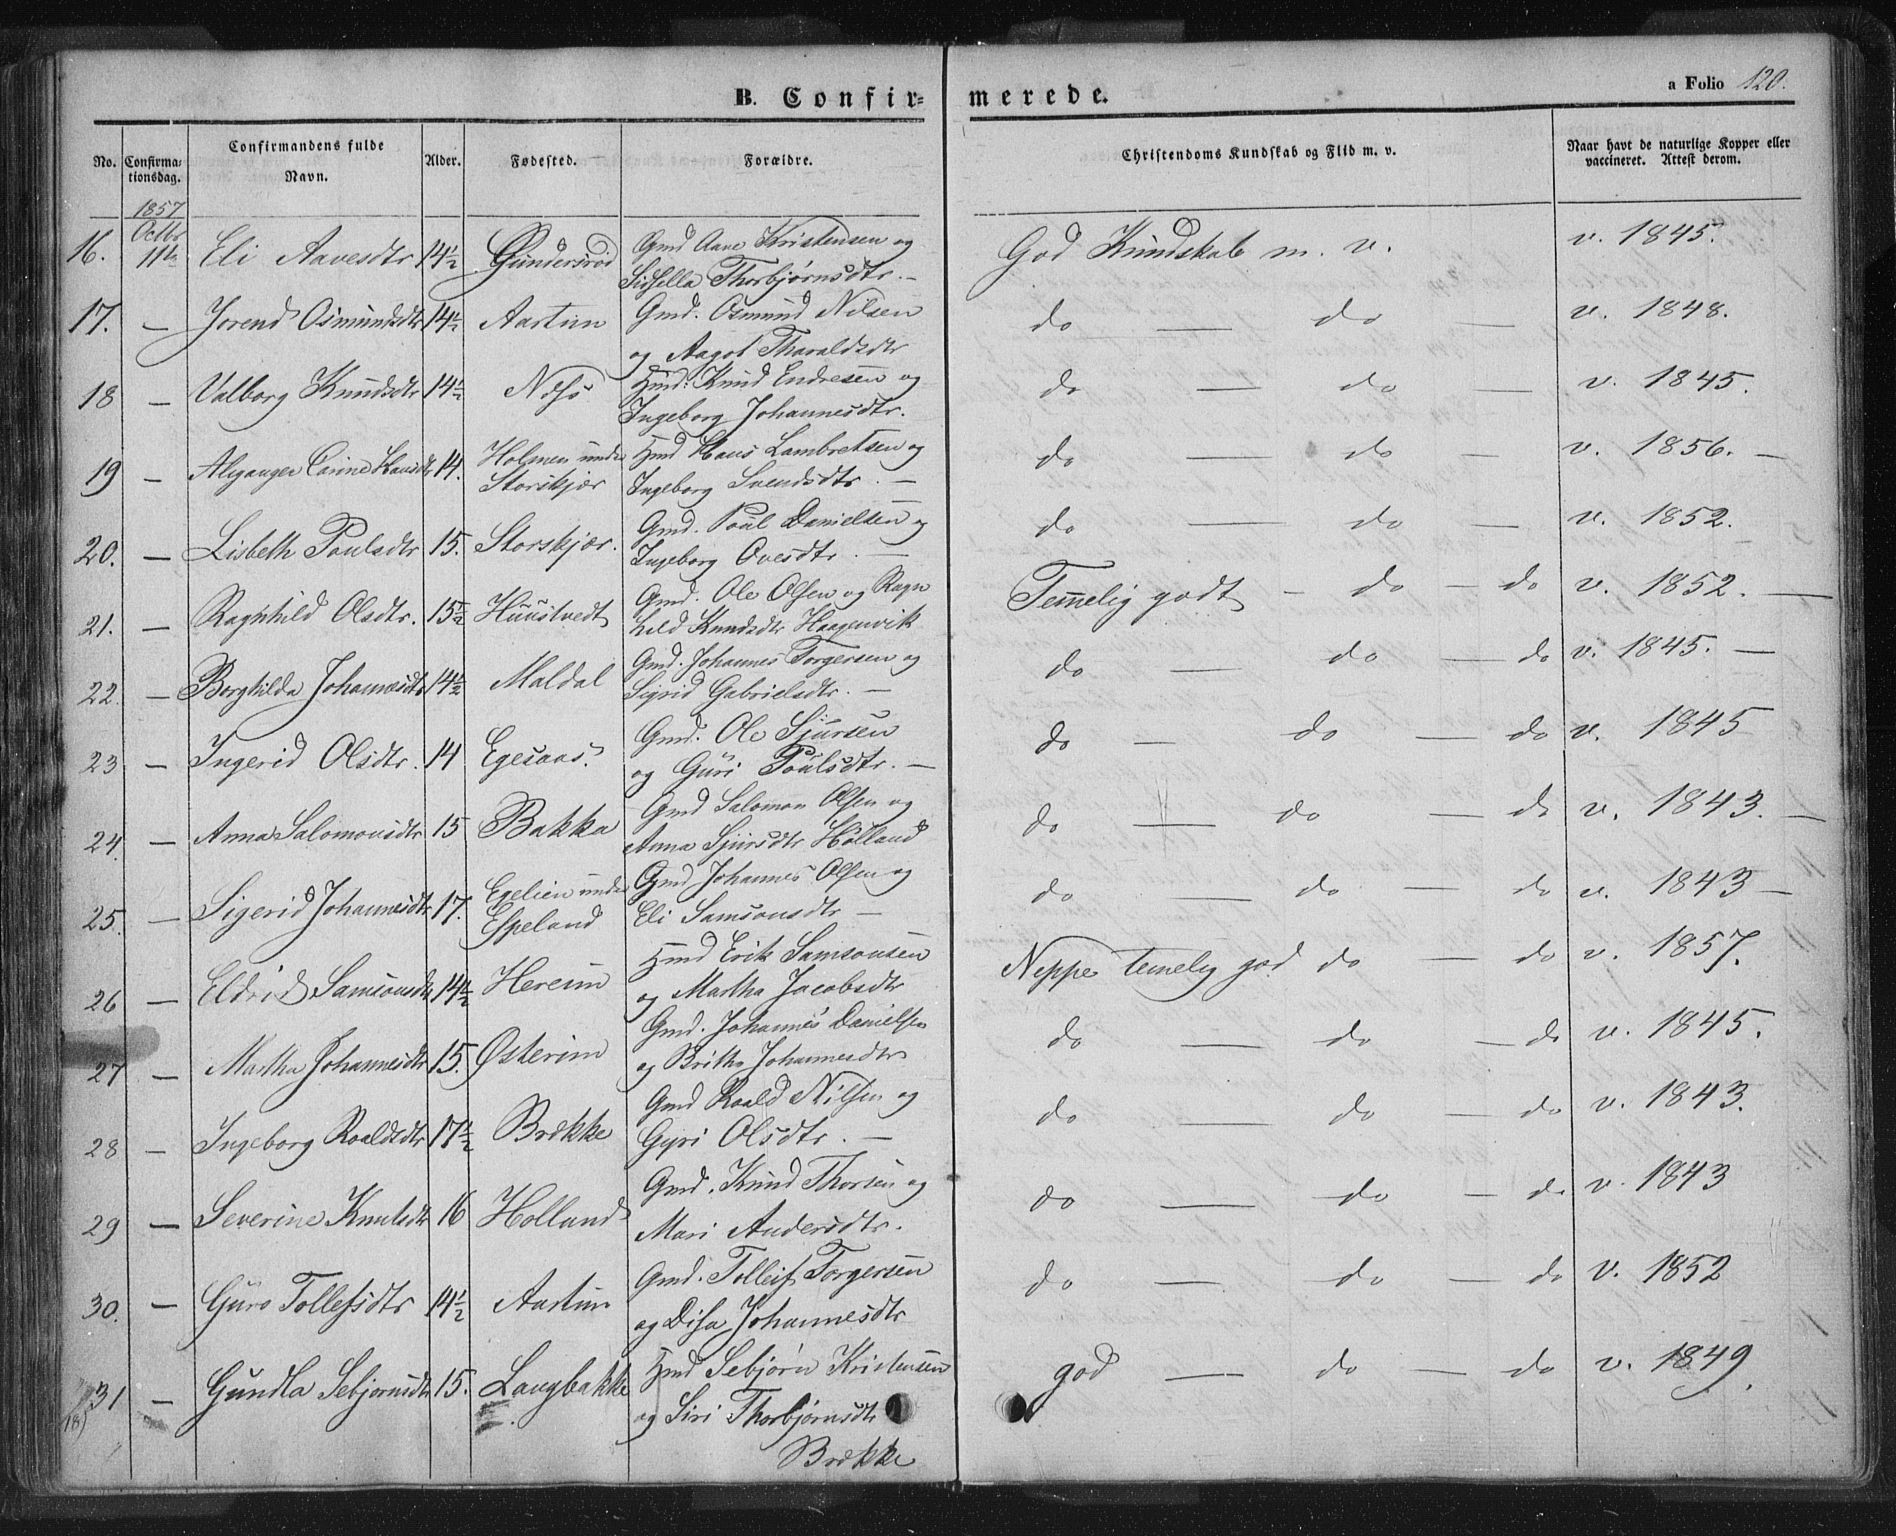 B. Confir=
merede.
a Folio 120.
No.
Confirma=
tionsdag.
Confirmandens fulde
Navn.
Alder.
Fødested.
Forældre.
Christendoms Kundskab og Flid m. v.
Naar havt de naturlige Kopper eller
vaccineret. Attest derom.
1857
Octbr
16. 11te Eli Aavesdtr 14½ Gundersrød Gmd Aave Kristensen og God Kundskab m. v. v. 1845.
Sidsella Thorbjørnsdtr. —
17. — Jorend Osmundsdtr 14½ Aartun Gmd. Osmund Nilsen do — do — v. 1848.
og Aagot Tharaldsdtr
18 — Valborg Knudsdtr 14½ Næss Hmd. Knud Endresen og do — do — v. 1845.
Ingeborg Johannesdtr.
19 — Carine Hansdtr 14. Holmen under Hmd Hans Lambretsen og do — do — v. 1856. —
Storskjær Ingeborg Svendsdtr. —
20. — Lisbeth Poulsdtr 15. Storskjær. Gmd. Poul Danielsen og do — do — v. 1852.
Ingeborg Ovesdtr. —
21. — Ragnhild Olsdtr. 15½ Huustvedt Gmd. Ole Olsen og Ragn Temelig godt — do — do v. 1852. —
hild Knudsdtr Haagenvik
22. — Borghilda Johannesdtr 14½ Maldal Gmd. Johannes Torgersen og do — do — do v. 1845. —
Sigrid Gabrielsdtr. —
23 — Ingerid Olsdtr. 14 Egesaas. Gmd. Ole Sjursen do — do — do v. 1845
og Guri Poulsdtr. —
24. — Anna Salomonsdtr 15 Bakka Gmd Salomon Olsen og do — do — do v. 1843. —
Anna Sjursdtr Holland
25. — Sigerid Johannesdtr 17. Egelien under Gmd Johannes Olsen og do — do — do v. 1843 —
Espeland Eli Samsonsdtr —
26 — Eldrid Samsonsdtr 14½ Hereim Hmd Erik Samsonsen Neppe temelig god do — do v. 1857.
og Martha Jacobsdtr
27 — Martha Johannesdtr 15. Østerim Gmd. Johannes Danielsen do — do — do v. 1845.
og Britha Johannesdtr
28 — Ingeborg Roaldsdtr 17½ Brække Gmd Roald Nilsen og do — do — do v. 1843.
Gyri Olsdtr. —
29 — Severine Knutsdtr 16 Holland Gmd. Knud Thorsen og do — do — do v. 1843
Mari Andersdtr.
30. — Guro Tollefsdtr 14½ Aartun Gmd. Tolleif Torgersen do — do — do v. 1852
og Disa Johannesdtr
31 — Gundla Sebjørnsdtr 15. Langbakke Hmd Sebjørn Kristensen god — do — do v. 1849.
og Siri Thorbjørnsdtr
Brække